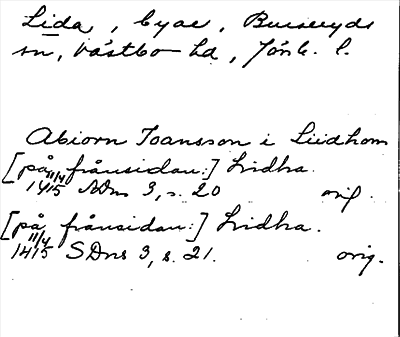 Lida, byar, Burseryds
sn, Västbo hd, Jönk. l.
Abiorn Joansson i Liidhom
[på frånsidan:] Lridha.
11/4 1415 SDns 3, s. 20 orig.
[på frånsidan:] Lridha.
11/4 1415 SDns 3, s. 21. orig.